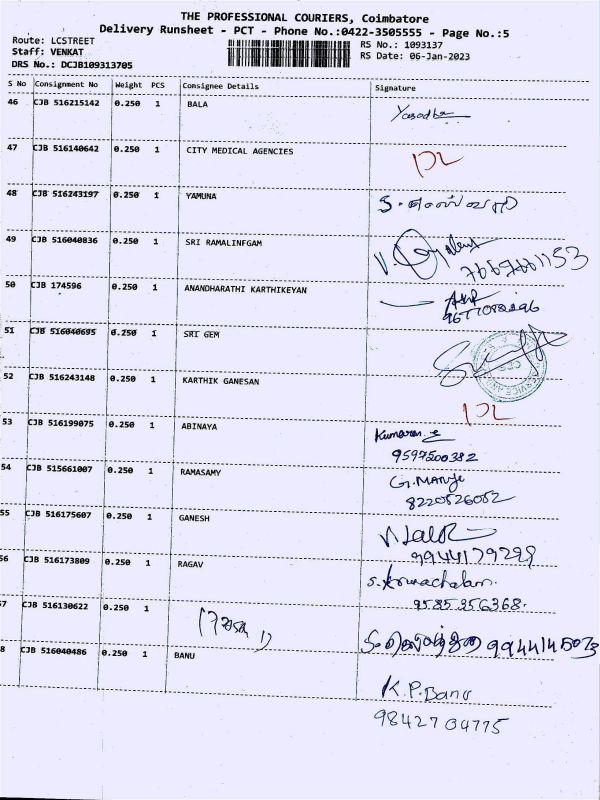 THE PROFESSIONAL COURIERS, Coimbatore
Delivery Runsheet - PCT - Phone No.:0422-3505555 - Page No.:5
Route: LCSTREET
Staff: VENKAT
DRS No.: DCJB109313705
RS No.: 1093137
RS Date: 06-Jan-2023
S No Consignment No Weight PCS Consignee Details Signature
46 CJB 516215142 0.250 1 BALA Yasodha
47 CJB 516140642 0.250 1 CITY MEDICAL AGENCIES
48 CJB 516243197 0.250 1 YAMUNA
49 CJB 516040836 0.250 1 SRI RAMALINFGAM
50 CJB 174596 0.250 1 ANANDHARATHI KARTHIKEYAN
51 CJB 516040695 0.250 1 SRI GEM
52 CJB 516243148 0.250 1 KARTHIK GANESAN
53 CJB 516199075 0.250 1 ABINAYA Kumaran
9597500382
54 CJB 515661007 0.250 1 RAMASAMY G.MANoje
8220526052
55 CJB 516175607 0.250 1 GANESH
9944179299
56 CJB 516173809 0.250 1 RAGAV S. Arunachalam.
9585356368.
57 CJB 516130622 0.250 1
58 CJB 516040486 0.250 1 BANU
K.P.Banu
9842704775